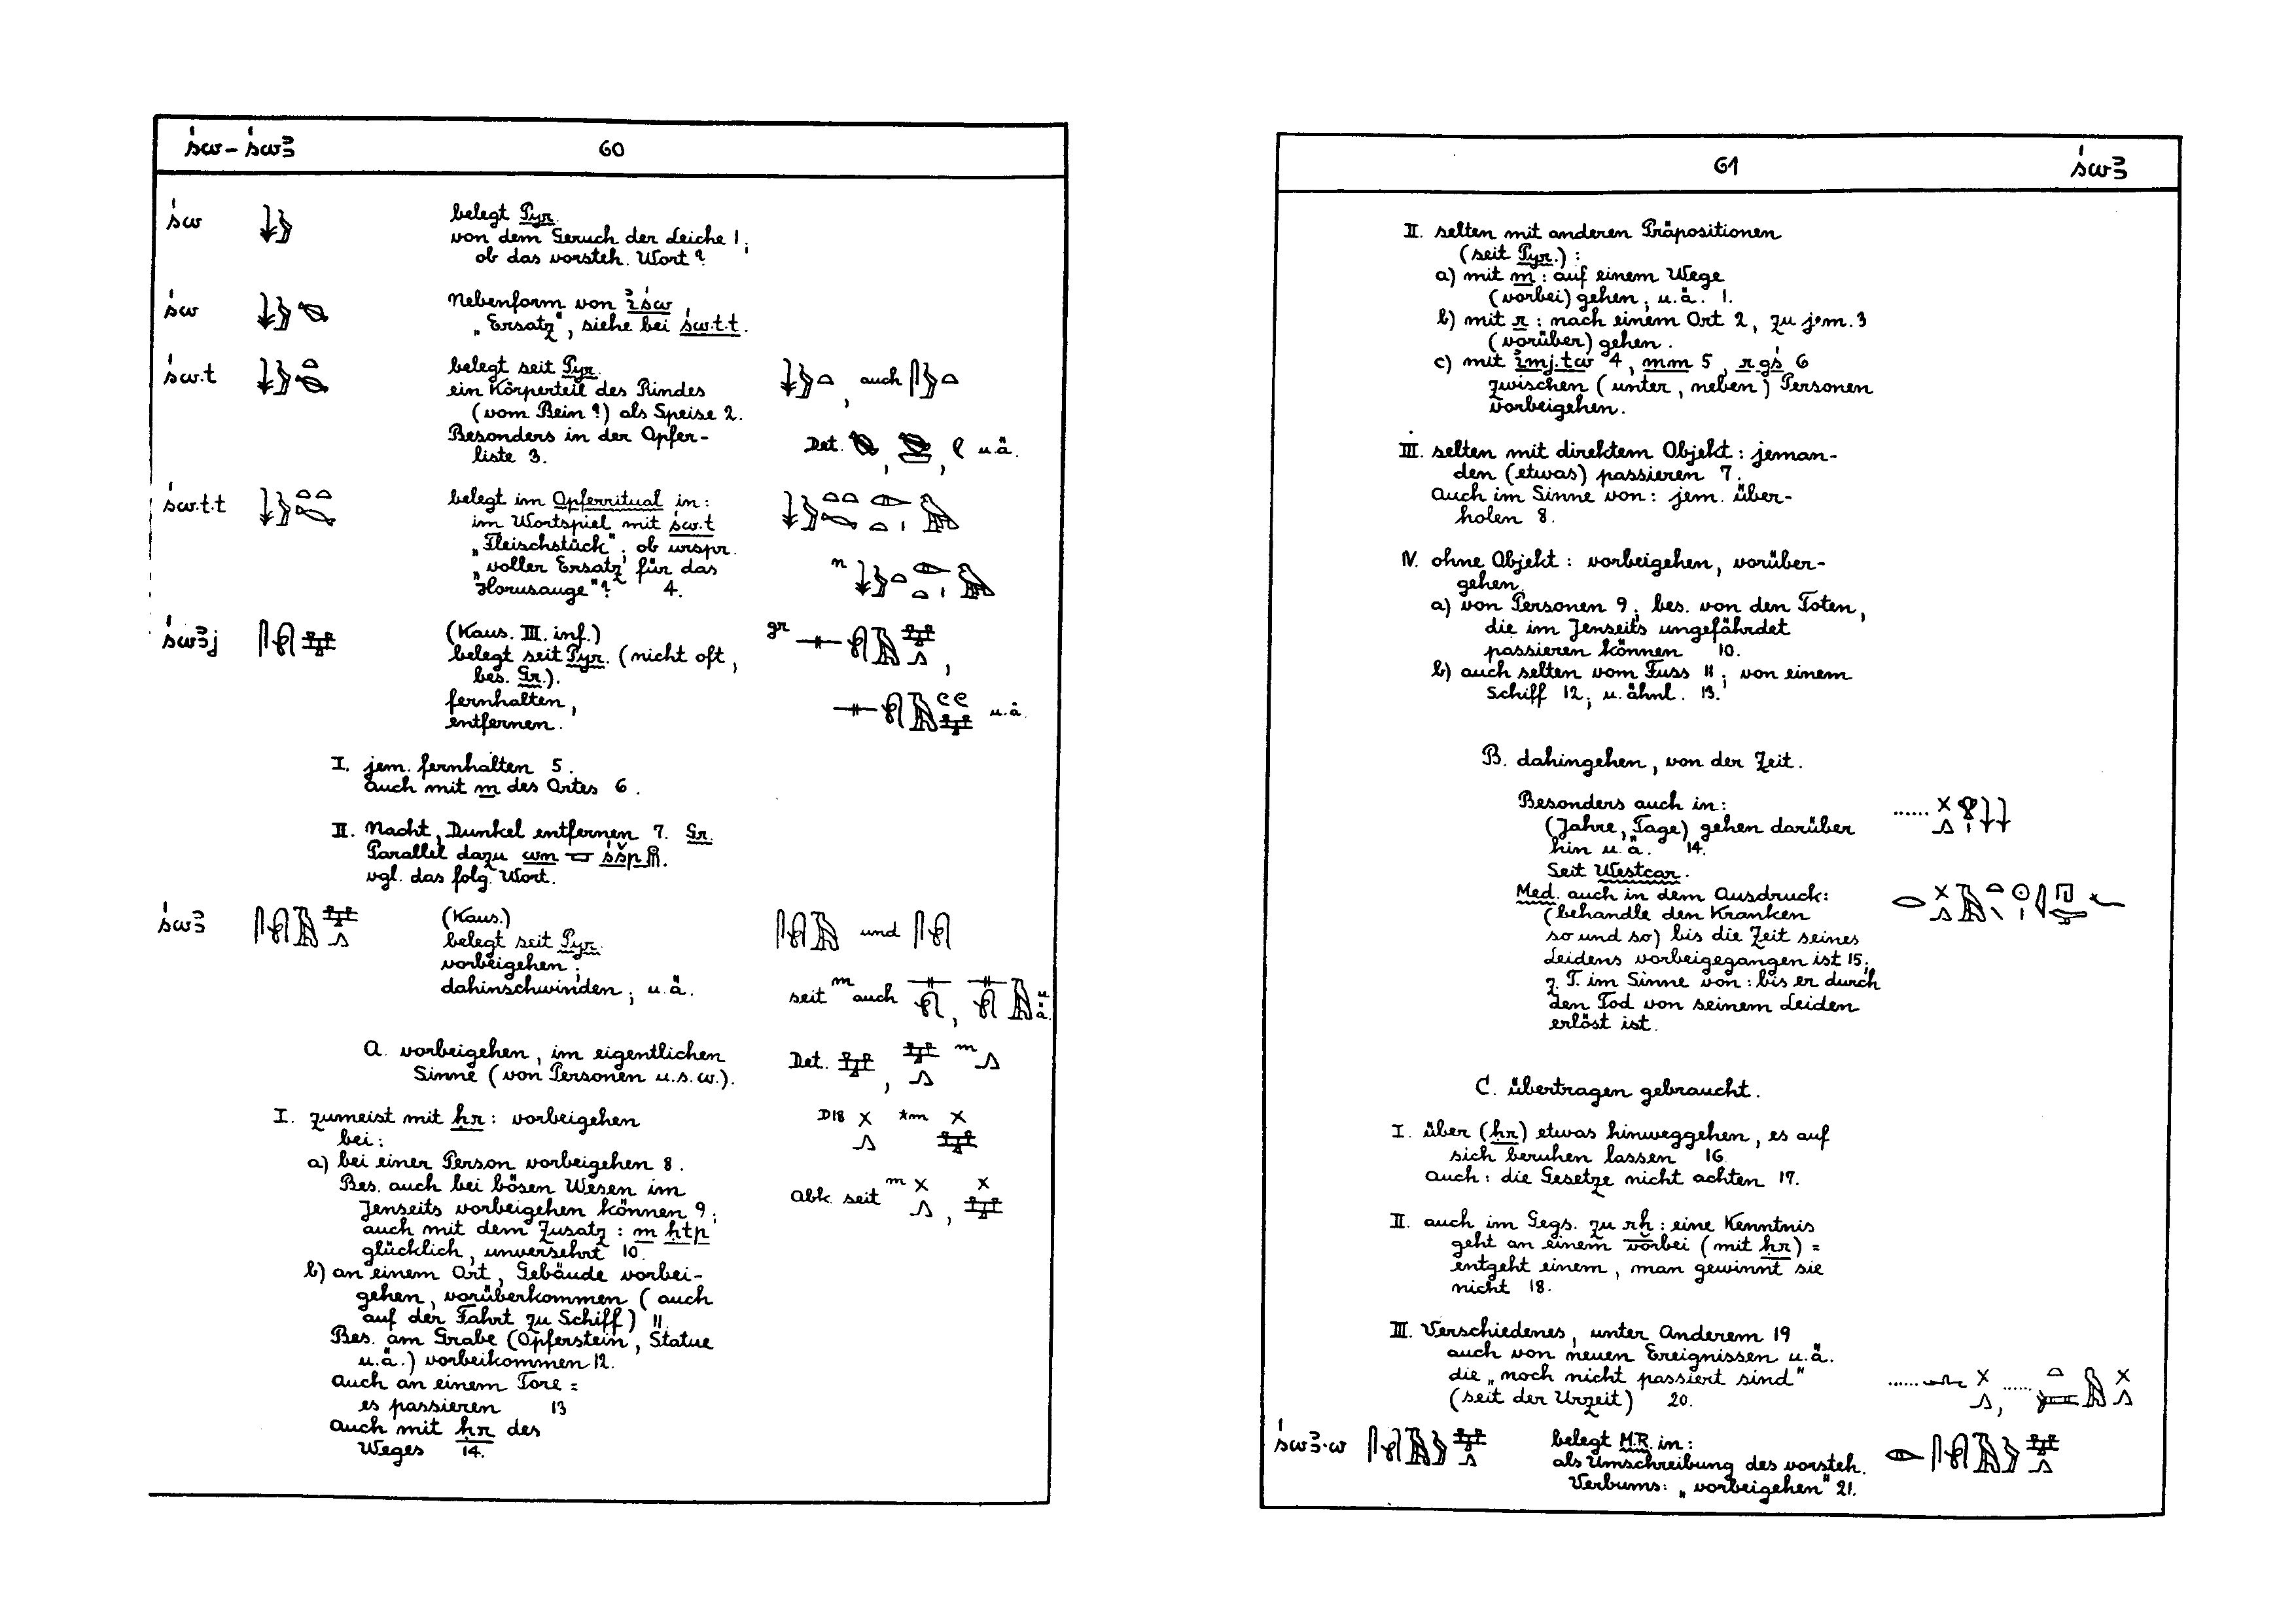 św – św3
60
św
belegt Pyr.
von dem Geruch der Leiche 1;
ob das vorsteh. Wort?
św
Nebenform von iśw
„Ersatz“, siehe bei św.t.t.
św.t
belegt seit Pyr.
ein Körperteil des Rindes
(vom Bein?) als Speise 2.
Besonders in der Opfer-
liste 3.
auch
Det. , , u.ä.
św.t.t
belegt im Opferritual in:
im Wortspiel mit św.t
„Fleischstück“; ob urspr.
„voller Ersatz für das
Horusauge“? 4.
n
św3j
(Kaus. III. inf.)
belegt seit Pyr. (nicht oft,
bes. Gr.).
fernhalten,
entfernen.
gr
u.ä.
I. jem. fernhalten 5.
auch mit m des Ortes 6.
II. Nacht, Dunkel entfernen 7. Gr.
Parallel dazu wn śšp.
vgl. das folg. Wort.
św3
(Kaus.)
belegt seit Pyr.
vorbeigehen;
dahinschwinden; u.ä.
und
seit m auch , u.ä.
A. vorbeigehen, im eigentlichen
Sinne (von Personen u.s.w.).
Det. , m
I. zumeist mit ḥr: vorbeigehen
bei:
D18 *m
a) bei einer Person vorbeigehen 8.
Bes. auch bei bösen Wesen im
Jenseits vorbeigehen können 9;
auch mit dem Zusatz: m ḥtp
glücklich, unversehrt 10.
Abk. seit m ,
b) an einem Ort, Gebäude vorbei-
gehen, vorüberkommen (auch
auf der Fahrt zu Schiff) 11.
Bes. am Grabe (Opferstein, Statue
u.ä.) vorbeikommen 12.
Auch an einem Tore =
es passieren 13
Auch mit ḥr des
Weges 14.
61
św3
II. selten mit anderen Präpositionen
(seit Pyr.):
a) mit m: auf einem Wege
(vorbei) gehen; u.ä. 1.
b) mit r: nach einem Ort 2, zu jem. 3
(vorüber) gehen.
c) mit imj.tw 4, mm 5, r gś 6
zwischen (unter, neben) Personen
vorbeigehen.
III. selten mit direktem Objekt: jeman-
den (etwas) passieren 7.
Auch im Sinne von: jem. über-
holen 8.
IV. ohne Objekt: vorbeigehen, vorüber-
gehen.
a) von Personen 9; bes. von den Toten,
die im Jenseits ungefährdet
passieren können 10.
b) auch selten vom Fuss 11; von einem
Schiff 12; u. ähnl. 13.
B. dahingehen, von der Zeit.
Besonders auch in:
(Jahre, Tage) gehen darüber
hin u.ä. 14.
Seit Westcar.
Med. auch in dem Ausdruck:
(behandle den Kranken
so und so) bis die Zeit seines
Leidens vorbeigegangen ist 15;
z. T. im Sinne von: bis er durch
den Tod von seinem Leiden
erlöst ist.
C. übertragen gebraucht.
I. über (ḥr) etwas hinweggehen, es auf
sich beruhen lassen 16.
Auch: die Gesetze nicht achten 17.
II. auch im Gegs. zu rḫ: eine Kenntnis
geht an einem vorbei (mit ḥr) =
entgeht einem, man gewinnt sie
nicht 18.
III. Verschiedenes, unter Anderem 19
auch von neuen Ereignissen u.ä.
die „noch nicht passiert sind“
(seit der Urzeit) 20.
św3.w
belegt M.R. in:
als Umschreibung des vorsteh.
Verbums: „vorbeigehen“ 21.